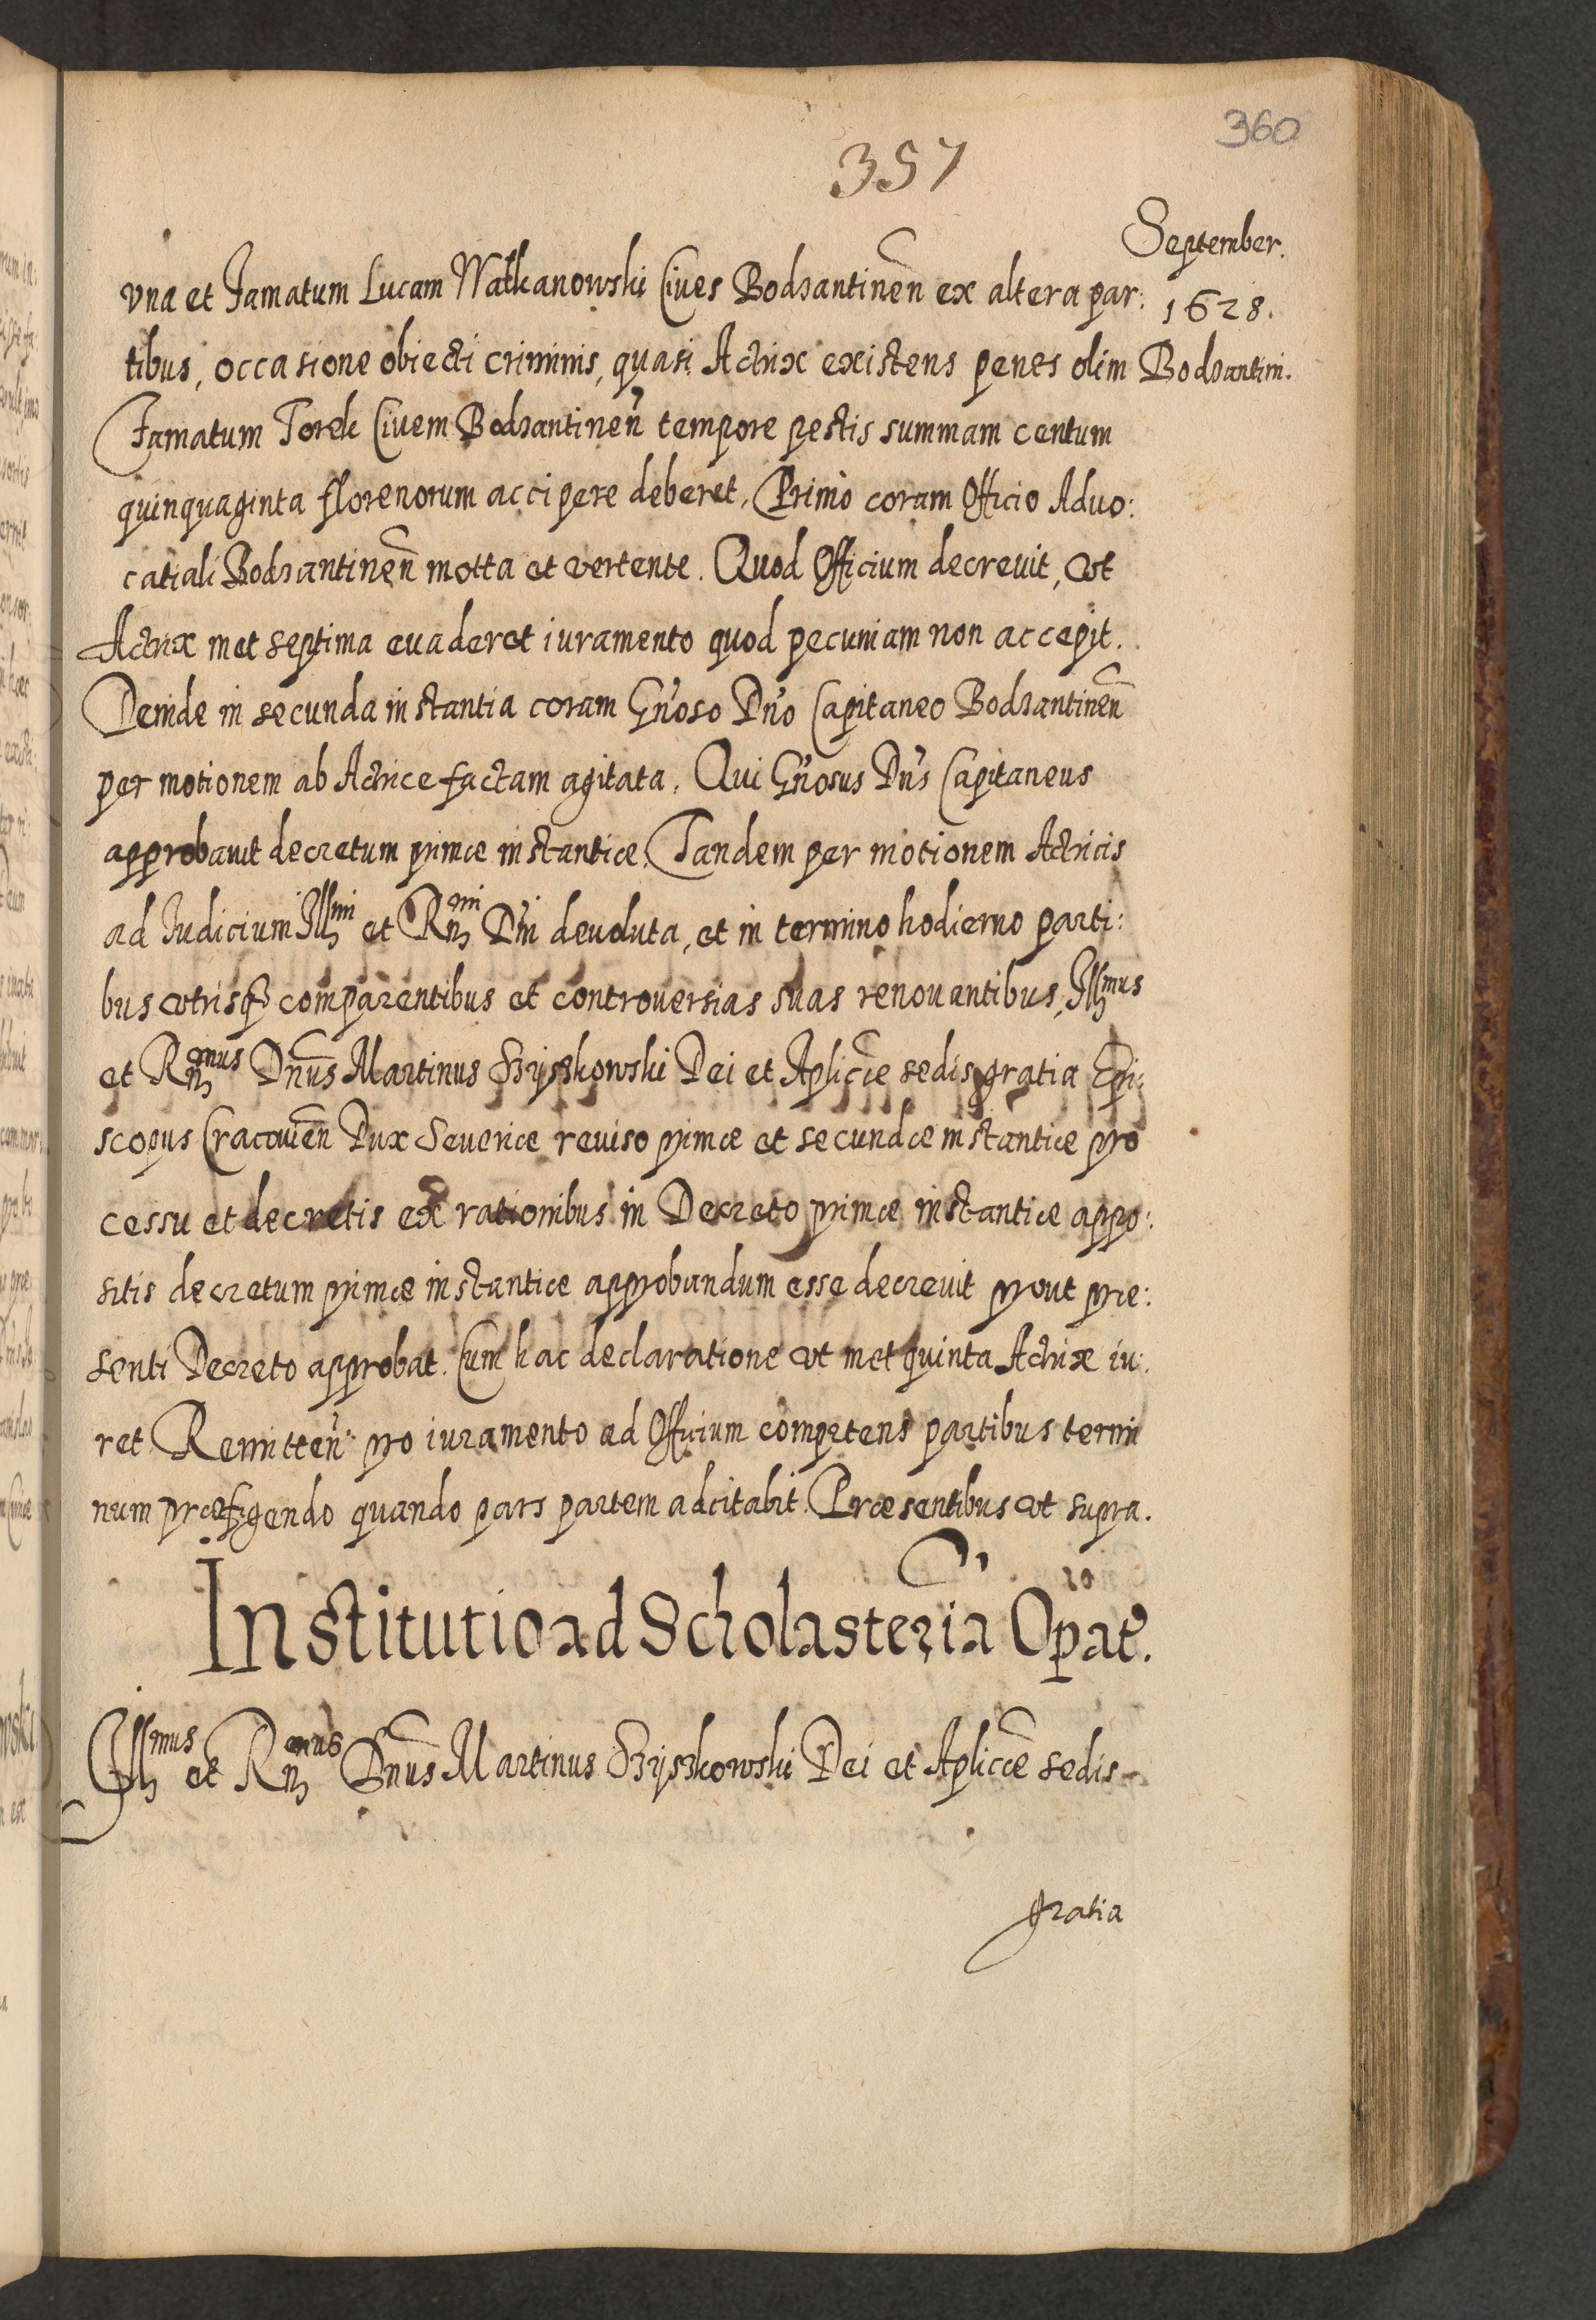 360
357
September.
1628.
Bodzantini.
vna et Famatum Lucam Watkanowski Ciues Bodzantinen̄ ex altera par:
tibus, occasione obiecti criminis, quasi Actrix existens penes olim
Famatum Torek Ciuem Bodzantinen̄ tempore pestis summam centum
quinquaginta florenorum accipere deberet, Primo coram Officio Aduo:
catiali Bodzantinen̄ motta et vertente. Quod Officium decrevit, vt
Actrix met septima euaderet iuramento quod pecuniam non accepit.
Deinde in secunda instantia coram Gn̄oso Dn̄o Capitaneo Bodzantinen̄
per motionem ab Actrice factam agitata. Qui Gn̄osus Dn̄s Capitaneus
approbauit decretum primæ instantiæ. Tandem per motionem Actricis
ad Iudicium Illmi et Rmi Dn̄i deuoluta, et in termino hodierno parti:
bus vtrisq3 comparentibus et controuersias suas renouantibus, Illmus
et Rmus Dn̄us Martinus Szyszkowski Dei et Aplicæ sedis gratia Epi:
scopus Cracouien̄ Dux Seueriæ reuiso primæ et secundæ instantiæ pro
cessu et decretis ex rationibus in Decreto primæ instantiæ appo:
sitis decretum primæ instantiæ approbandum esse decrevit prout præ:
senti Decreto approbat. Cum hac declaratione vt met quinta Actrix iu:
ret Remitten̄ pro iuramento ad Officium competens partibus termi
num præfigendo quando pars partem adcitabit. Præsentibus vt supra.
Institutio ad Scholasteria͂ Opat.
Illmus et Rmus Dn̄us Martinus Szyszkowski Dei et Aplicæ sedis
gratia